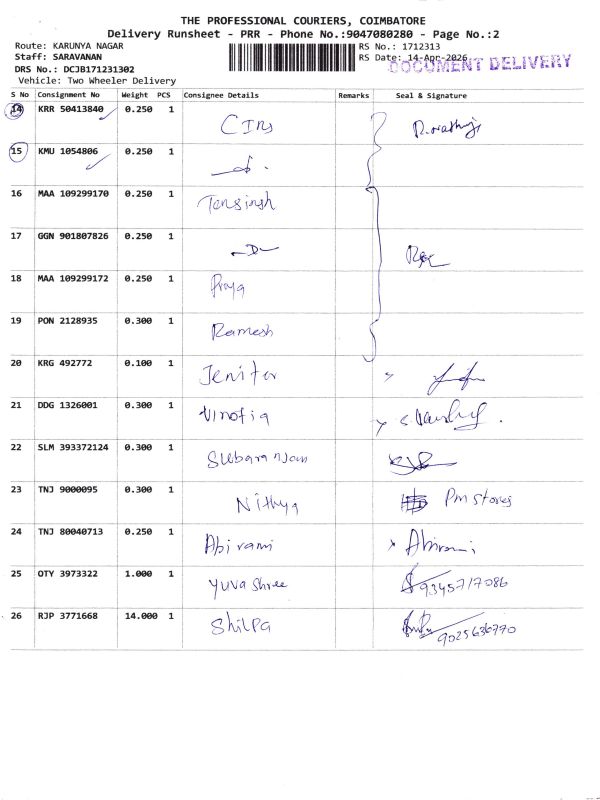 THE PROFESSIONAL COURIERS, COIMBATORE
Delivery Runsheet - PRR - Phone No.:9047080280 - Page No.:2
Route: KARUNYA NAGAR
RS No.: 1712313
Staff: SARAVANAN
RS Date: 14-Apr-2026
DOCUMENT DELIVERY
DRS No.: DCJB171231302
Vehicle: Two Wheeler Delivery
S No Consignment No Weight PCS Consignee Details Remarks Seal & Signature
14 KRR 50413840 0.250 1
15 KMU 1054806 0.250 1
16 MAA 109299170 0.250 1 Tensingh
17 GGN 901807826 0.250 1 -D-
18 MAA 109299172 0.250 1 Priya
19 PON 2128935 0.300 1 Ramesh
20 KRG 492772 0.100 1 Jenifer
21 DDG 1326001 0.300 1 Vinotia
22 SLM 393372124 0.300 1 Subaranjani
23 TNJ 9000095 0.300 1 Nithya Pm Stores
24 TNJ 80040713 0.250 1 Abirami Abirami
25 OTY 3973322 1.000 1 Yuva Shree 9345717086
26 RJP 3771668 14.000 1 Shilpa 9025636770